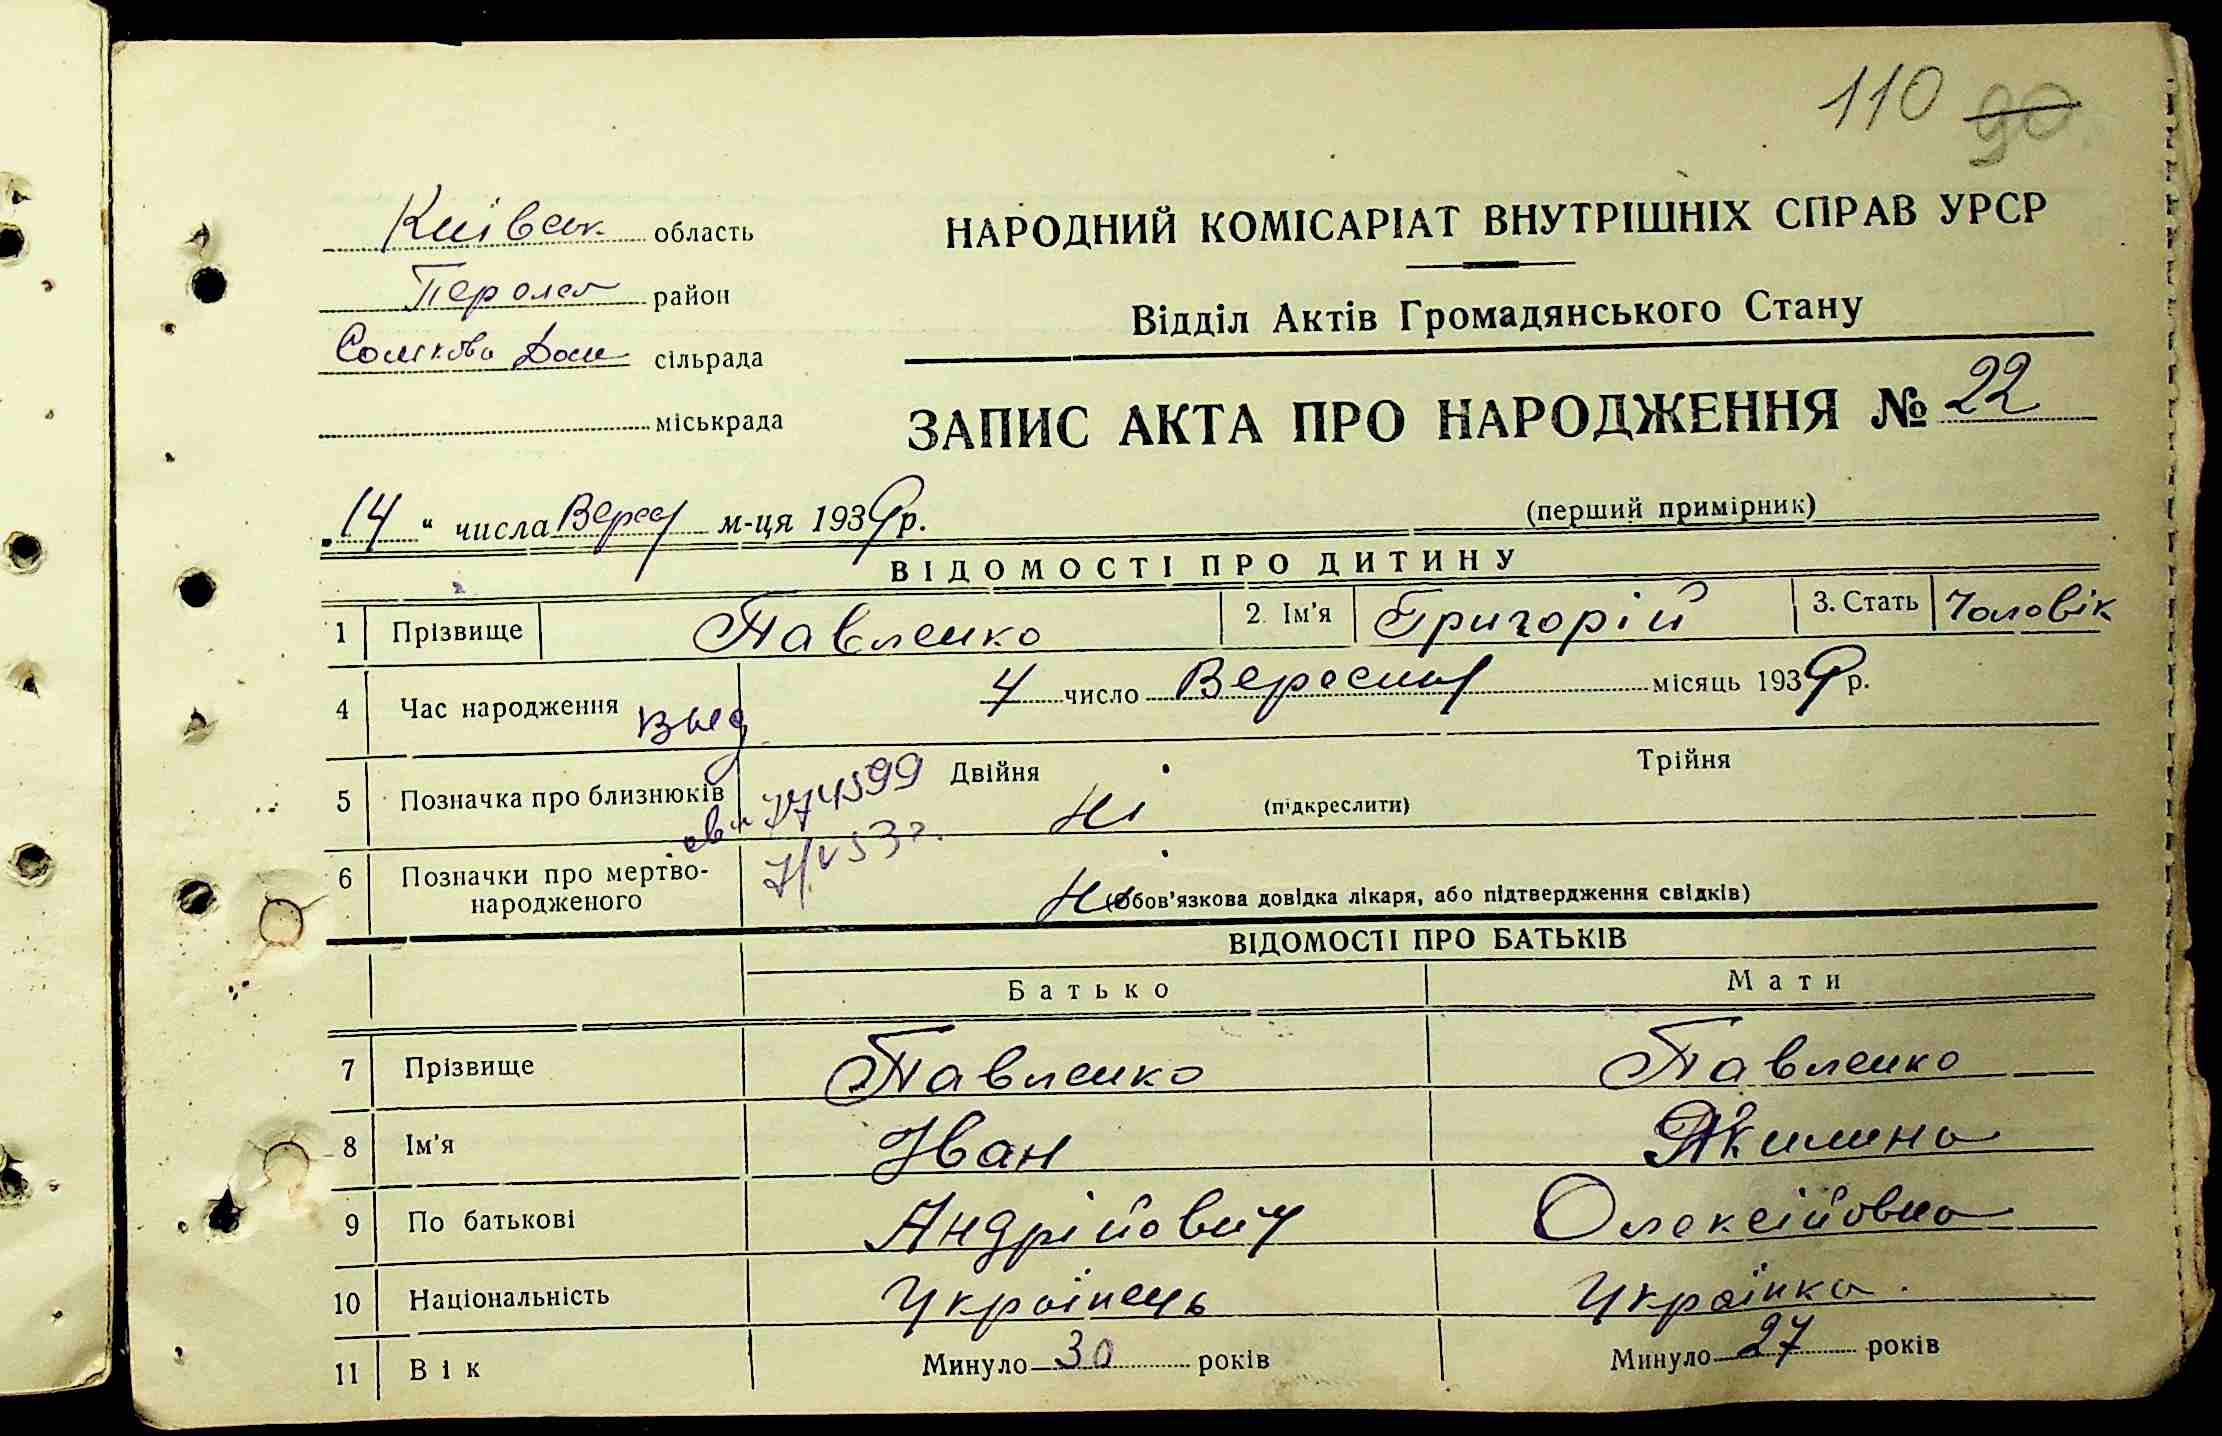 110 90
Київськ область
район
сільрада
міськрада
НАРОДНИЙ КОМІСАРІАТ ВНУТРІШНІХ СПРАВ УРСР
Відділ Актів Громадянського Стану
ЗАПИС АКТА ПРО НАРОДЖЕННЯ № 22
„14“ числа м-ця 1939 р.
(перший примірник)
ВІДОМОСТІ ПРО ДИТИНУ
1 Прізвище Павленко 2. Ім'я Григорій 3. Стать Чоловік
4 Час народження 4 число Вересня місяць 1939 р.
5 Позначка про близнюків Двійня Трійня
Ні (підкреслити)
6 Позначки про мертво-
народженого
Ні (Обов'язкова довідка лікаря, або підтвердження свідків)
ВІДОМОСТІ ПРО БАТЬКІВ
Батько Мати
7 Прізвище Павленко Павленко
8 Ім'я Іван Якилина
9 По батькові Андрійович Олексійовна
10 Національність Українець Українка.
11 Вік Минуло 30 років Минуло 27 років